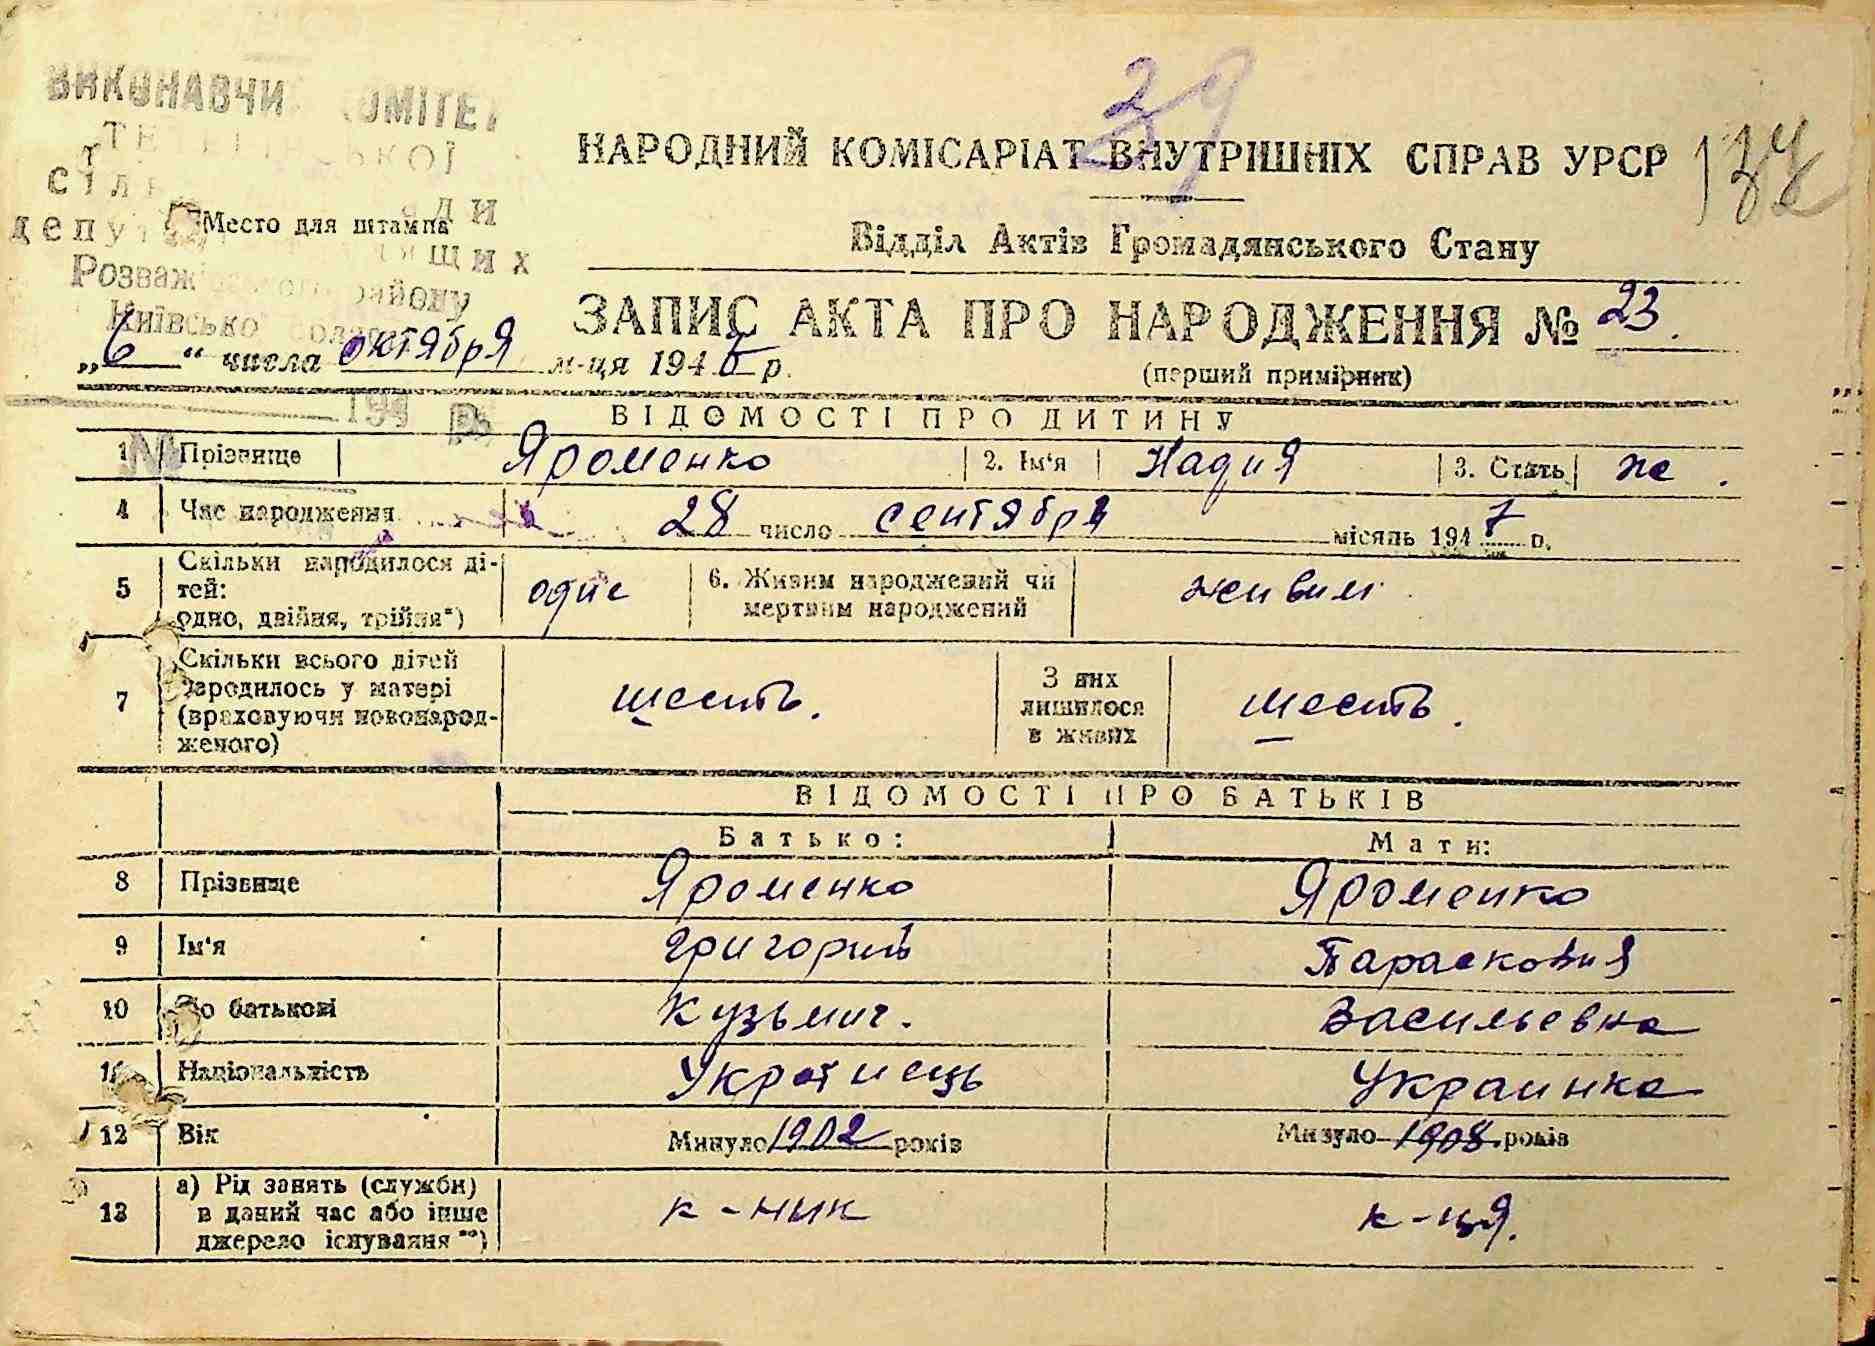 39
ВИКОНАВЧИ КОМІТЕТ
НАРОДНИЙ КОМІСАРІАТ ВНУТРІШНІХ СПРАВ УРСР
Место для штампа
Відділ Актів Громадянського Стану
щих
Розваж району
Київсько
ЗАПИС АКТА ПРО НАРОДЖЕННЯ № 23.
„6“ числа октября м-ця 194 р.
(перший примірник)
ВІДОМОСТІ ПРО ДИТИНУ
1 Прізвище Яроменко 2. Ім'я Надия 3. Стать же.
4 Час народження 28 число сентября місяць 1947 р.
5 Скільки народилося ді-
тей:
одно, двійня, трійня*) одне 6. Живим народжений чи
мертвим народжений живим
7 Скільки всього дітей
народилось у матері
(враховуючи новонарод-
женого) шесть. З них
лишилося
в живих шесть.
ВІДОМОСТІ ПРО БАТЬКІВ
Батько: Мати:
8 Прізвище Яроменко Яроменко
9 Ім'я Григорий Парасковия
10 По батькові Кузьмич. Васильевна
11 Національність Украинець Украинка
12 Вік Минуло 1902 років Минуло 1908 років
13 а) Рід занять (служби)
в даний час або інше
джерело існування **) к-ник к-ця.